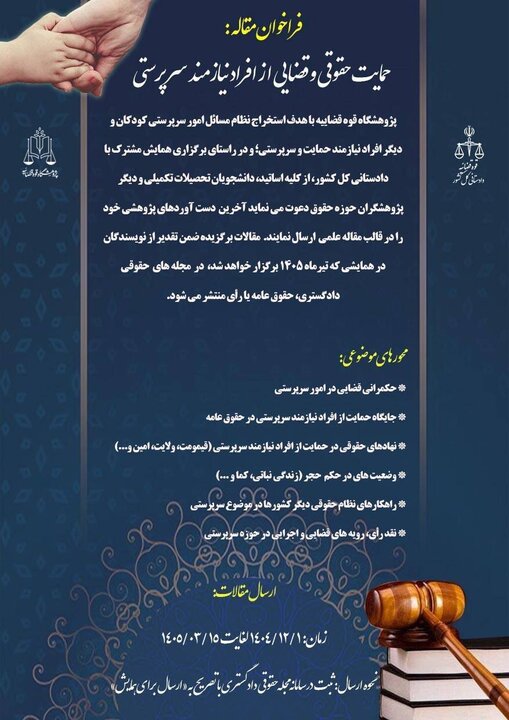 فراخوان مقاله:
حمایت حقوقی و قضایی از افراد نیازمند سرپرستی
پژوهشگاه قوه قضاییه
قوه قضائیه
دادستانی کل کشور
پژوهشگاه قوه قضاییه با هدف استخراج نظام مسائل امور سرپرستی کودکان و
دیگر افراد نیازمند حمایت و سرپرستی؛ و در راستای برگزاری همایش مشترک با
دادستانی کل کشور، از کلیه اساتید، دانشجویان تحصیلات تکمیلی و دیگر
پژوهشگران حوزه حقوق دعوت می نماید آخرین دست آوردهای پژوهشی خود
را در قالب مقاله علمی ارسال نمایند. مقالات برگزیده ضمن تقدیر از نویسندگان
در همایشی که تیر ماه ۱۴۰۵ برگزار خواهد شد، در مجله های حقوقی
دادگستری، حقوق عامه یا رأی منتشر می شود.
محورهای موضوعی:
* حکمرانی قضایی در امور سرپرستی
* جایگاه حمایت از افراد نیازمند سرپرستی در حقوق عامه
* نهادهای حقوقی در حمایت از افراد نیازمند سرپرستی (قیمومت، ولایت، امین و...)
* وضعیت های در حکم حجر (زندگی نباتی، کما و ...)
* راهکارهای نظام حقوقی دیگر کشورها در موضوع سرپرستی
* نقد رأی، رویه های قضایی و اجرایی در حوزه سرپرستی
ارسال مقالات:
زمان: ۱۴۰۴/۱۲/۱ لغایت ۱۴۰۵/۰۳/۱۵
نحوه ارسال: ثبت در سامانه مجله حقوقی دادگستری با تصریح به «ارسال برای همایش»